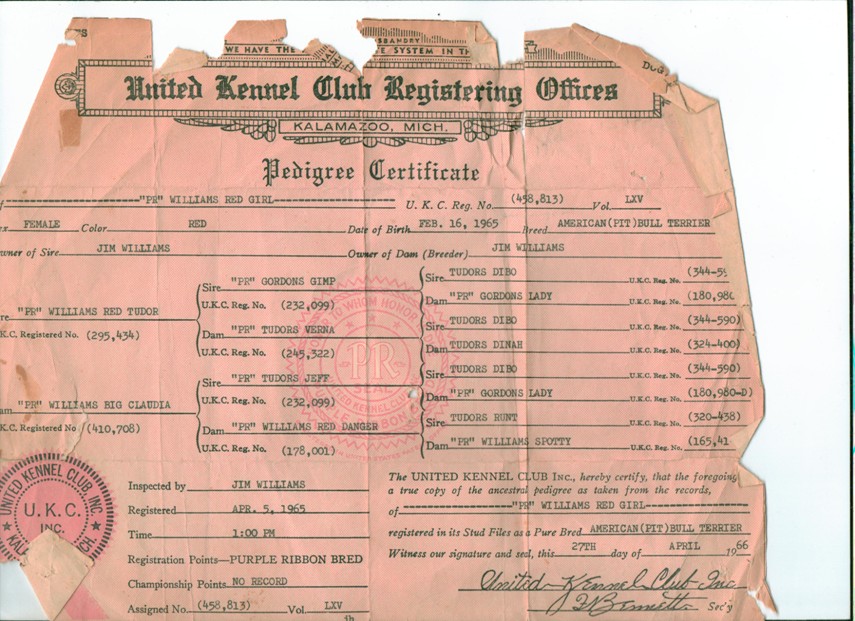 WE HAVE THE
SBANDRY
E SYSTEM IN TH
DOG
United Kennel Club Registering Offices
KALAMAZOO, MICH.
Pedigree Certificate
"PR" WILLIAMS RED GIRL U. K. C. Reg. No. (458,813) Vol. LXV
FEMALE Color RED Date of Birth FEB. 16, 1965 Breed AMERICAN(PIT)BULL TERRIER
wner of Sire JIM WILLIAMS Owner of Dam (Breeder) JIM WILLIAMS
Sire TUDORS DIBO U.K.C. Reg. No. (344-59
Sire "PR" GORDONS GIMP
U.K.C. Reg. No. (232,099)
Dam "PR" GORDONS LADY U.K.C. Reg. No. (180,980
re "PR" WILLIAMS RED TUDOR
K.C. Registered No. (295,434)
Sire TUDORS DIBO U.K.C. Reg. No. (344-590)
Dam "PR" TUDORS VERNA
U.K.C. Reg. No. (245,322)
Dam TUDORS DINAH U.K.C. Reg. No. (324-400)
Sire TUDORS DIBO U.K.C. Reg. No. (344-590)
Sire "PR" TUDORS JEFF
U.K.C. Reg. No. (232,099)
Dam "PR" GORDONS LADY U.K.C. Reg. No. (180,980-D)
am "PR" WILLIAMS BIG CLAUDIA
K.C. Registered No (410,708)
Sire TUDORS RUNT U.K.C. Reg. No. (320-438)
Dam "PR" WILLIAMS RED DANGER
U.K.C. Reg. No. (178,001)
Dam "PR" WILLIAMS SPOTTY U.K.C. Reg. No. (165,41
TO WHOM HONOR
PR
SEAL
UNITED KENNEL CLUB INC
U.K.C.
INC.
MICH.
Inspected by JIM WILLIAMS
Registered APR. 5, 1965
Time 1:00 PM
Registration Points—PURPLE RIBBON BRED
Championship Points NO RECORD
Assigned No. (458,813) Vol. LXV
The UNITED KENNEL CLUB INC., hereby certify, that the foregoing
a true copy of the ancestral pedigree as taken from the records,
of "PR" WILLIAMS RED GIRL
registered in its Stud Files as a Pure Bred AMERICAN(PIT)BULL TERRIER
Witness our signature and seal, this 27TH day of APRIL 1966
United Kennel Club Inc
Sec'y